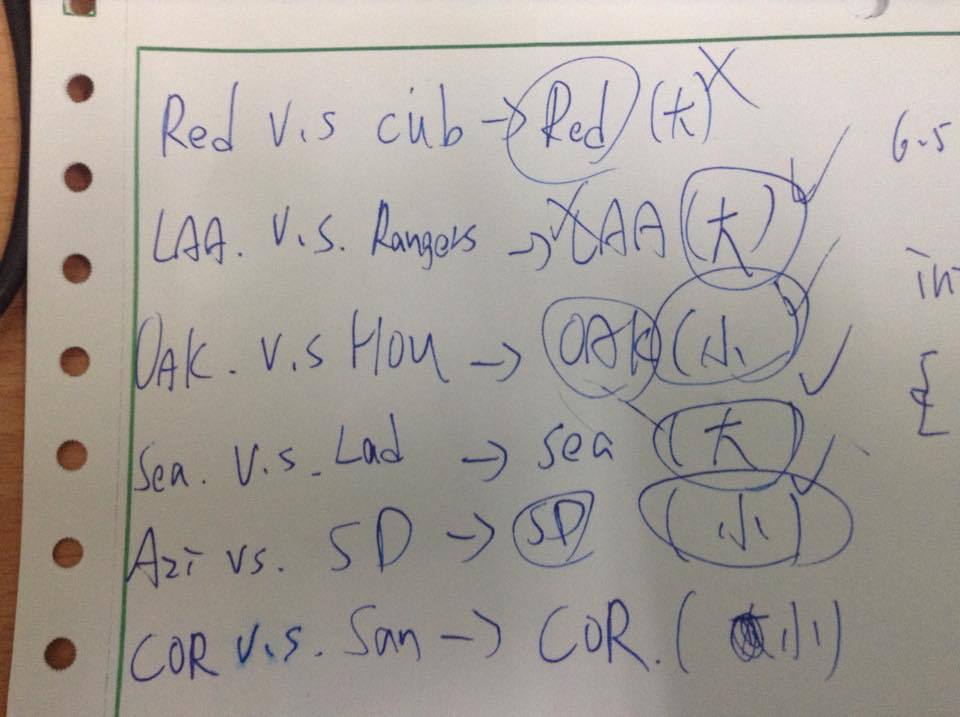 Red v.s cub → Red (大) X
6.5
LAA. v.s. Rangers → LAA (大)
in
OAK. v.s Hou → OAK (小)
{
Sea. v.s. Lad → Sea (大)
Azi vs. SD → SD (小)
COR v.s. San → COR. (小)